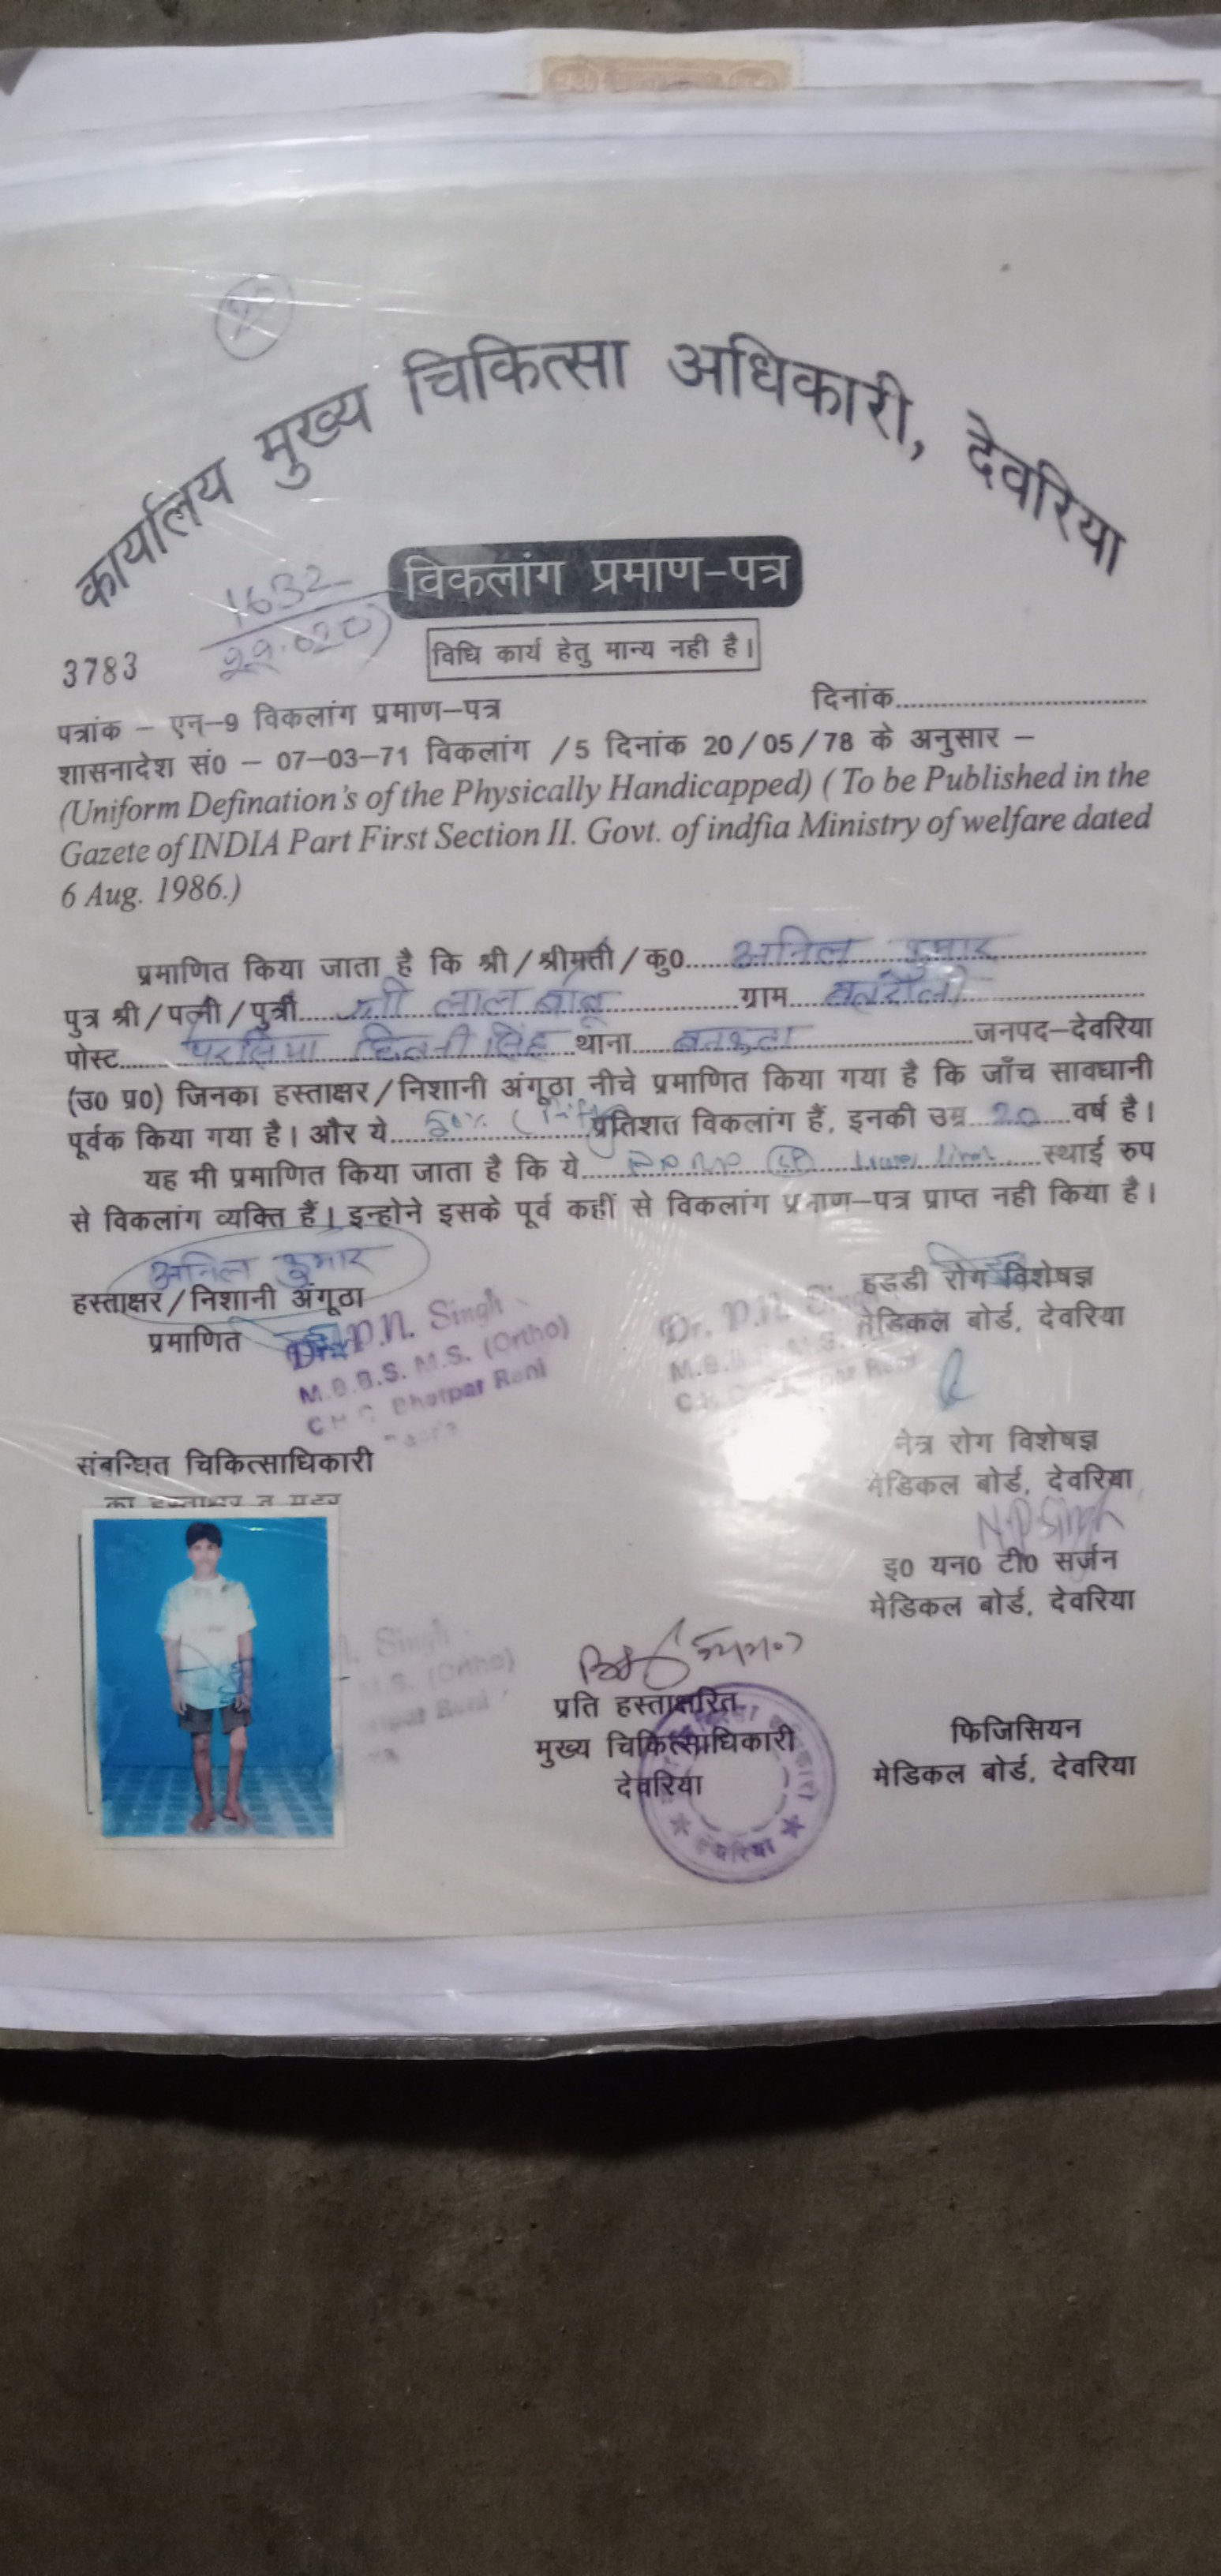 कार्यालय मुख्य चिकित्सा अधिकारी, देवरिया
विकलांग प्रमाण-पत्र
1632
विधि कार्य हेतु मान्य नही है।
3783
दिनांक
पत्रांक – एन-9 विकलांग प्रमाण-पत्र
शासनादेश सं0 – 07-03-71 विकलांग /5 दिनांक 20/05/78 के अनुसार –
(Uniform Defination's of the Physically Handicapped) ( To be Published in the
Gazete of INDIA Part First Section II. Govt. of indfia Ministry of welfare dated
6 Aug. 1986.)
प्रमाणित किया जाता है कि श्री/श्रीमती/कु0 अनिल कुमार
पुत्र श्री/पत्नी/पुत्री श्री लाल बाबू ग्राम
पोस्ट परसिया छितनी सिंह थाना बनकटा जनपद-देवरिया
(उ0 प्र0) जिनका हस्ताक्षर/निशानी अंगूठा नीचे प्रमाणित किया गया है कि जाँच सावधानी
पूर्वक किया गया है। और ये प्रतिशत विकलांग हैं, इनकी उम्र 20 वर्ष है।
यह भी प्रमाणित किया जाता है कि ये lower limb स्थाई रुप
से विकलांग व्यक्ति हैं। इन्होने इसके पूर्व कहीं से विकलांग प्रमाण-पत्र प्राप्त नही किया है।
अनिल कुमार
हस्ताक्षर/निशानी अंगूठा
प्रमाणित
Dr. P.N. Singh
M.B.B.S. M.S. (Ortho)
C.H.C. Bhatpar Rani
Dr. P.N. Singh
हडडी रोग विशेषज्ञ
मेडिकल बोर्ड, देवरिया
संबन्धित चिकित्साधिकारी
नेत्र रोग विशेषज्ञ
मेडिकल बोर्ड, देवरिया
N.P. Singh
इ0 यन0 टी0 सर्जन
मेडिकल बोर्ड, देवरिया
Singh
M.S. (Ortho)
प्रति हस्ताक्षरित
मुख्य चिकित्साधिकारी
देवरिया
फिजिसियन
मेडिकल बोर्ड, देवरिया
देवरिया